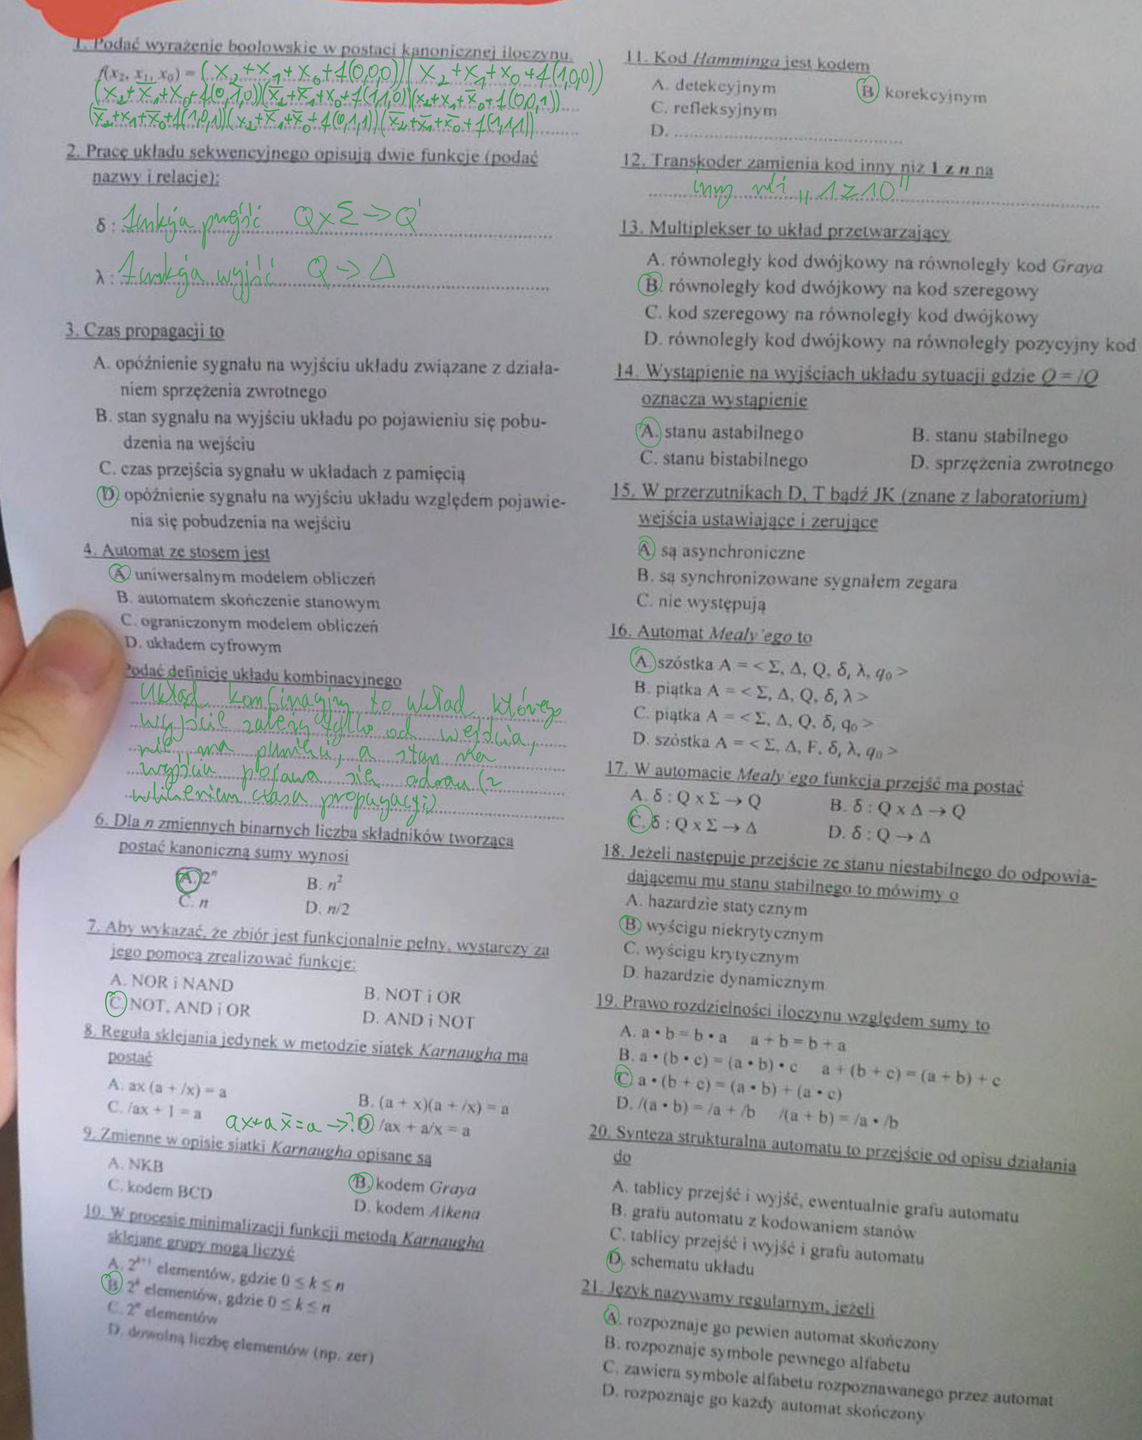 1. Podać wyrażenie boolowskie w postaci kanonicznej iloczynu.
f(x₂, x₁, x₀) = (x₂+x₁+x₀+f(0,0,0))(x̄₂+x₁+x₀+f(1,0,0))
(x₂+x̄₁+x₀+f(0,1,0))(x̄₂+x̄₁+x₀+f(1,1,0))(x₂+x₁+x̄₀+f(0,0,1))
(x̄₂+x₁+x̄₀+f(1,0,1))(x₂+x̄₁+x̄₀+f(0,1,1))(x̄₂+x̄₁+x̄₀+f(1,1,1))
2. Pracę układu sekwencyjnego opisują dwie funkcje (podać
nazwy i relacje):
δ : funkcja przejść Q×Σ→Q'
λ : funkcja wyjść Q→Δ
3. Czas propagacji to
A. opóźnienie sygnału na wyjściu układu związane z działa-
niem sprzężenia zwrotnego
B. stan sygnału na wyjściu układu po pojawieniu się pobu-
dzenia na wejściu
C. czas przejścia sygnału w układach z pamięcią
D. opóźnienie sygnału na wyjściu układu względem pojawie-
nia się pobudzenia na wejściu
4. Automat ze stosem jest
A. uniwersalnym modelem obliczeń
B. automatem skończenie stanowym
C. ograniczonym modelem obliczeń
D. układem cyfrowym
Podać definicję układu kombinacyjnego
układ kombinacyjny to układ którego
wyjście zależy tylko od wejścia,
nie ma pamięci, a stan na
wyjściu pojawia się odrazu (z
wliczeniem czasu propagacji)
6. Dla n zmiennych binarnych liczba składników tworząca
postać kanoniczną sumy wynosi
A. 2ⁿ B. n²
C. n D. n/2
7. Aby wykazać, że zbiór jest funkcjonalnie pełny, wystarczy za
jego pomocą zrealizować funkcje:
A. NOR i NAND B. NOT i OR
C. NOT, AND i OR D. AND i NOT
8. Reguła sklejania jedynek w metodzie siatek Karnaugha ma
postać
A. ax (a + /x) = a B. (a + x)(a + /x) = a
C. /ax + 1 = a ax+ax̄=a →? D. /ax + a/x = a
9. Zmienne w opisie siatki Karnaugha opisane są
A. NKB B. kodem Graya
C. kodem BCD D. kodem Aikena
10. W procesie minimalizacji funkcji metodą Karnaugha
sklejane grupy mogą liczyć
A. 2ᵏ⁺¹ elementów, gdzie 0 ≤ k ≤ n
B. 2ᵏ elementów, gdzie 0 ≤ k ≤ n
C. 2ⁿ elementów
D. dowolną liczbę elementów (np. zer)
11. Kod Hamminga jest kodem
A. detekcyjnym B. korekcyjnym
C. refleksyjnym
D. ........................
12. Transkoder zamienia kod inny niż 1 z n na
inny niż „1 z 10"
13. Multiplekser to układ przetwarzający
A. równoległy kod dwójkowy na równoległy kod Graya
B. równoległy kod dwójkowy na kod szeregowy
C. kod szeregowy na równoległy kod dwójkowy
D. równoległy kod dwójkowy na równoległy pozycyjny kod
14. Wystąpienie na wyjściach układu sytuacji gdzie Q = /Q
oznacza wystąpienie
A. stanu astabilnego B. stanu stabilnego
C. stanu bistabilnego D. sprzężenia zwrotnego
15. W przerzutnikach D, T bądź JK (znane z laboratorium)
wejścia ustawiające i zerujące
A. są asynchroniczne
B. są synchronizowane sygnałem zegara
C. nie występują
16. Automat Mealy'ego to
A. szóstka A = < Σ, Δ, Q, δ, λ, q₀ >
B. piątka A = < Σ, Δ, Q, δ, λ >
C. piątka A = < Σ, Δ, Q, δ, q₀ >
D. szóstka A = < Σ, Δ, F, δ, λ, q₀ >
17. W automacie Mealy'ego funkcja przejść ma postać
A. δ : Q x Σ → Q B. δ : Q x Δ → Q
C. δ : Q x Σ → Δ D. δ : Q → Δ
18. Jeżeli następuje przejście ze stanu niestabilnego do odpowia-
dającemu mu stanu stabilnego to mówimy o
A. hazardzie statycznym
B. wyścigu niekrytycznym
C. wyścigu krytycznym
D. hazardzie dynamicznym
19. Prawo rozdzielności iloczynu względem sumy to
A. a • b = b • a a + b = b + a
B. a • (b • c) = (a • b) • c a + (b + c) = (a + b) + c
C. a • (b + c) = (a • b) + (a • c)
D. /(a • b) = /a + /b /(a + b) = /a • /b
20. Synteza strukturalna automatu to przejście od opisu działania
do
A. tablicy przejść i wyjść, ewentualnie grafu automatu
B. grafu automatu z kodowaniem stanów
C. tablicy przejść i wyjść i grafu automatu
D. schematu układu
21. Język nazywamy regularnym, jeżeli
A. rozpoznaje go pewien automat skończony
B. rozpoznaje symbole pewnego alfabetu
C. zawiera symbole alfabetu rozpoznawanego przez automat
D. rozpoznaje go każdy automat skończony